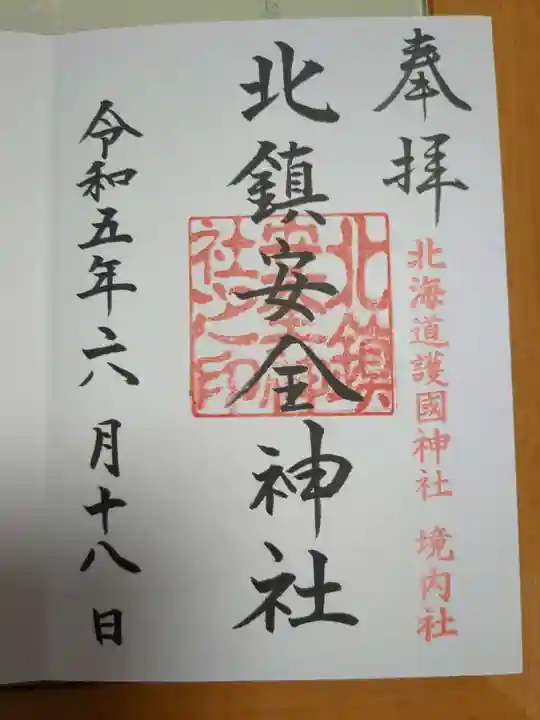 奉拝
北海道護國神社 境内社
北鎮安全神社
北鎮
安全神
社之印
令和五年六月十八日